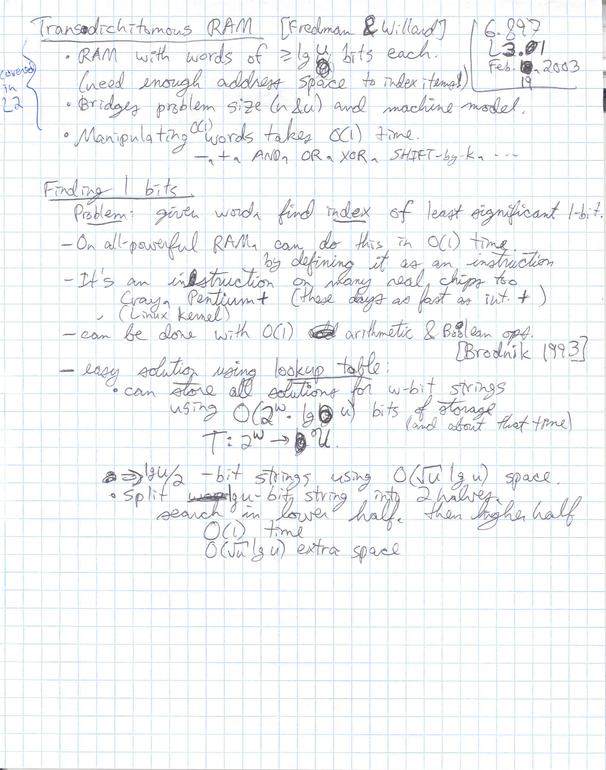 Transdichitomous RAM [Fredman & Willard]
6.897
L3.01
Feb. , 2003
19
covered in L2
• RAM with words of ≥ lg u bits each.
(need enough address space to index items!)
• Bridges problem size (n & u) and machine model.
• Manipulating O(1) words takes O(1) time.
-, +, AND, OR, XOR, SHIFT-by-k, ...
Finding 1 bits
Problem: given word, find index of least significant 1-bit.
- On all-powerful RAM, can do this in O(1) time
by defining it as an instruction
- It's an instruction on many real chips too
Cray, Pentium+ (these days as fast as int. +)
, (Linux kernel)
- can be done with O(1) arithmetic & Boolean ops.
[Brodnik 1993]
- easy solution using lookup table:
• can store all solutions for w-bit strings
using O(2^w · lg u) bits of storage
(and about that time)
T: 2^w → U.
⇒ lg u/2 -bit strings using O(√u lg u) space.
• split lg u-bit string into 2 halves,
search in lower half, then higher half
O(1) time
O(√u lg u) extra space